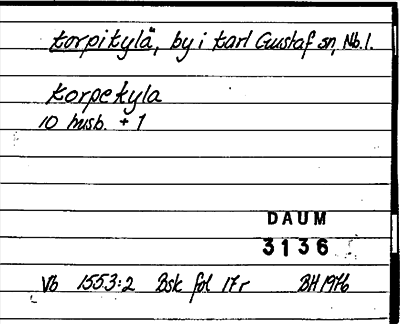 Korpikylä, by i Karl Gustaf sn, Nb.l.
Korpekyla
10 husb. + 1
DAUM
3136
Vb 1553:2 Bsk fol 17r BH 1976